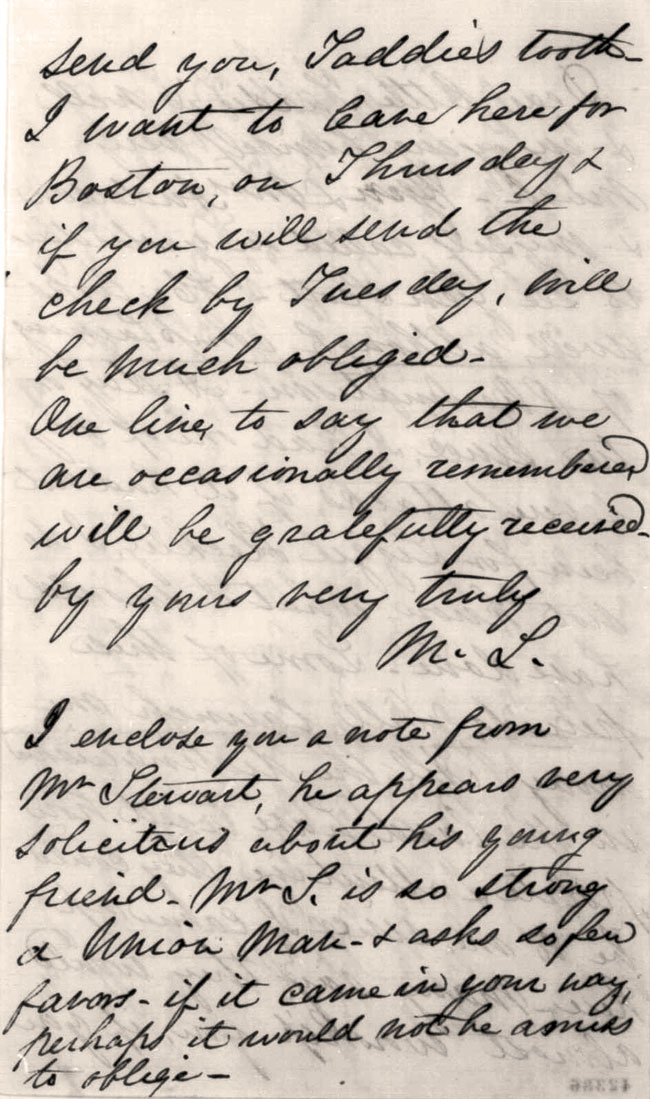 send you, Taddie's tooth -
I want to leave here for
Boston, on Thursday &
if you will send the
check by Tuesday, will
be much obliged -
One line, to say that we
are occasionally remembered
will be gratefully received -
by yours very truly
M. L.
I enclose you a note from
Mr Stewart, he appears very
solicitous about his young
friend - Mr S. is so strong
a Union Man - & asks so few
favors - if it came in your way,
perhaps it would not be amiss
to oblige -
42386